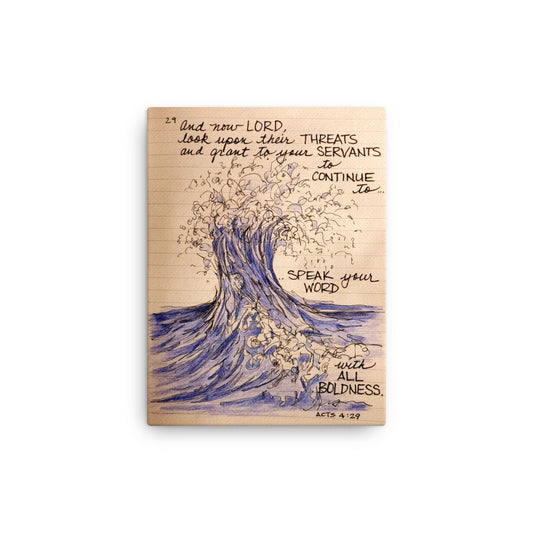 29 And now LORD,
look upon their THREATS
and grant to your SERVANTS
to
CONTINUE
to...
...SPEAK your
WORD
with
ALL
BOLDNESS.
ACTS 4:29